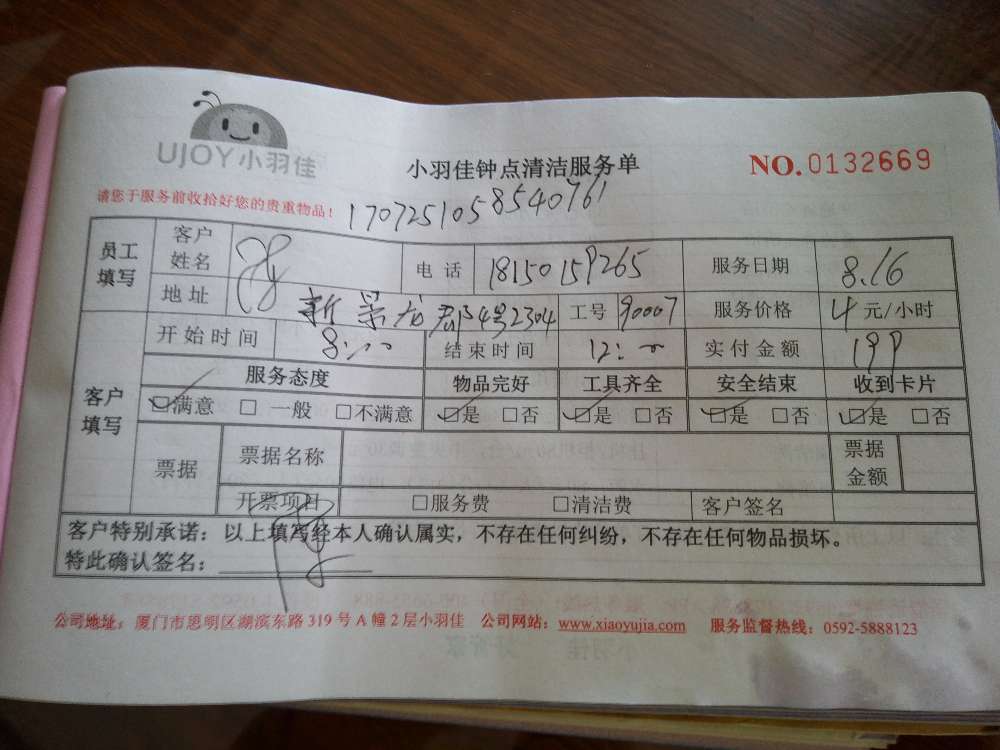 UJOY小羽佳
小羽佳钟点清洁服务单
NO.0132669
请您于服务前收拾好您的贵重物品！
1707251058540761
员工填写 客户姓名 电话 18150159265 服务日期 8.16
地址 新景龙郡4号2304 工号 90007 服务价格 4元/小时
客户填写 开始时间 8:00 结束时间 12:00 实付金额 199
服务态度 物品完好 工具齐全 安全结束 收到卡片
☑满意 □一般 □不满意 ☑是 □否 ☑是 □否 ☑是 □否 ☑是 □否
票据 票据名称 票据金额
开票项目 □服务费 □清洁费 客户签名
客户特别承诺：以上填写经本人确认属实，不存在任何纠纷，不存在任何物品损坏。
特此确认签名：
公司地址：厦门市思明区湖滨东路319号A幢2层小羽佳 公司网站：www.xiaoyujia.com 服务监督热线：0592-5888123